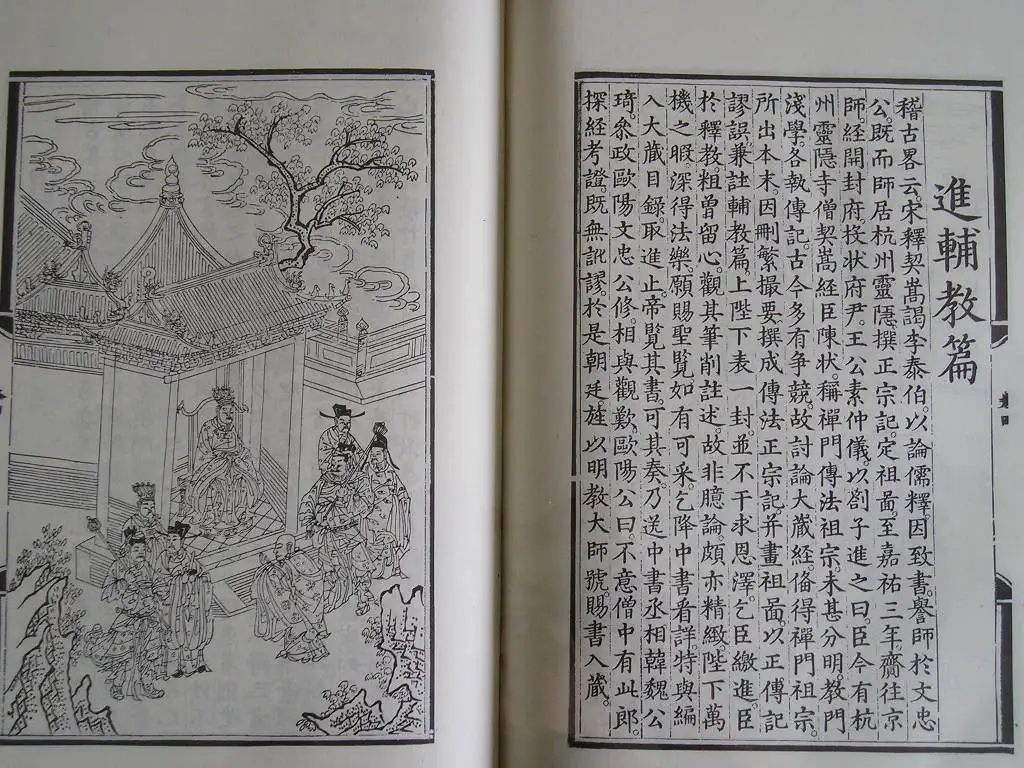 進輔教篇
稽古畧云。宋釋契嵩謁李泰伯。以論儒釋。因致書。譽師於文忠
公。既而師居杭州靈隱撰正宗記。定祖啚。至嘉祐三年。齎往京
師。經開封府。投狀府尹。王公素仲儀以劄子進之曰。臣今有杭
州靈隱寺僧契嵩。經臣陳狀。稱禪門傳法祖宗未甚分明。教門
淺學。各執傳記。古今多有爭競。故討論大藏經。俻得禪門祖宗。
所出本末。因刪繁撮要。撰成傳法正宗記。并畫祖啚。以正傳記
謬誤。兼註輔教篇。上陛下表一封。並不干求恩澤。乞臣繳進。臣
於釋教。粗曾留心。觀其筆削註述。故非臆論。頗亦精緻。陛下萬
機之暇。深得法樂。願賜聖覧。如有可采。乞降中書看詳。特與編
入大藏目録。取進止。帝覧其書。可其奏。乃送中書丞相韓魏公
琦。叅政歐陽文忠公修。相與觀歎。歐陽公曰。不意僧中有此郎。
探經考證。既無訛謬。於是朝廷旌以明教大師號。賜書入藏。